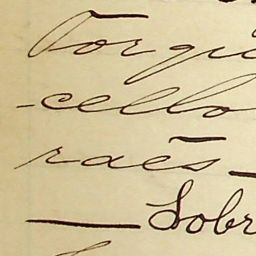 Torqu
-cello
raes
Lobr